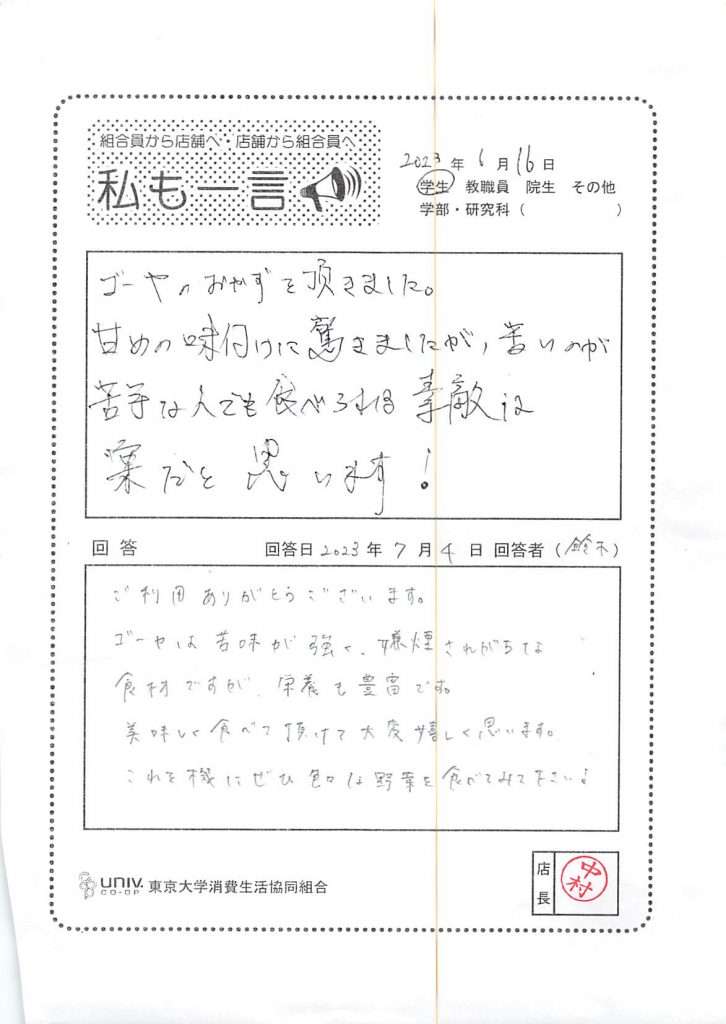 組合員から店舗へ・店舗から組合員へ
私も一言
2023年6月16日
学生 教職員 院生 その他
学部・研究科( )
ゴーヤのおかずを頂きました。
甘めの味付けに驚きましたが、苦いのが
苦手な人でも食べられる素敵な
案だと思います!
回答 回答日2023年7月4日 回答者(鈴木)
ご利用ありがとうございます。
ゴーヤは苦味が強く、嫌煙されがちな
食材ですが、栄養も豊富です。
美味しく食べて頂けて大変嬉しく思います。
これを機にぜひ色々な野菜を食べてみて下さい!
UNIV. CO-OP 東京大学消費生活協同組合
店長 中村